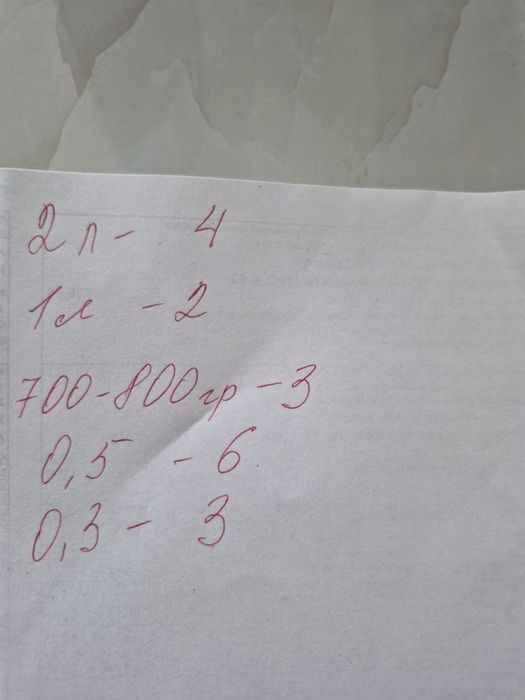 2 л - 4
1 л - 2
700-800 гр - 3
0,5 - 6
0,3 - 3